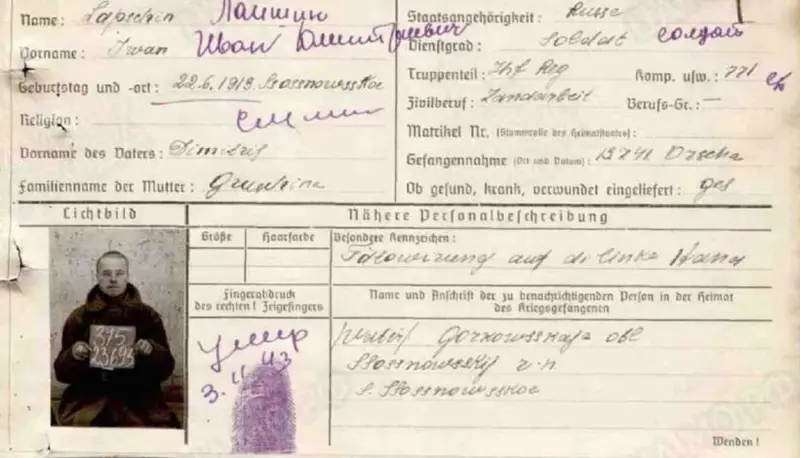 Name: Lapschin Лапшин
Vorname: Iwan Иван Дмитриевич
Geburtstag und -ort: 22.6.1913. Sossnowsskoe
Religion:
Vorname des Vaters: Dimitrij
Familienname der Mutter:
Staatsangehörigkeit: Russe
Dienstgrad: Soldat солдат
Truppenteil: Inf Reg Komp. usw.: 771
Zivilberuf: Landarbeit Berufs-Gr.: —
Matrikel Nr. (Stammrolle des Heimatstaates):
Gefangennahme (Ort und Datum): Orscha
Ob gesund, krank, verwundet eingeliefert: ges
Lichtbild
Nähere Personalbeschreibung
Größe Haarfarbe Besondere Kennzeichen:
auf di linke Hand
Fingerabdruck
des rechten! Zeigefingers
Name und Anschrift der zu benachrichtigenden Person in der Heimat
des Kriegsgefangenen
умер
3.11.43
Gorkowsskaja obl
Sossnowsskij r-n
s. Sossnowsskoe
315
Wenden!